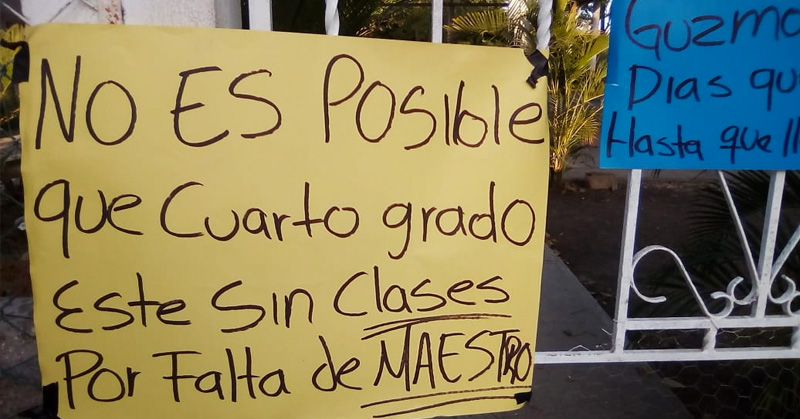 NO ES POSIBLE
que Cuarto grado
Este Sin Clases
Por Falta de MAESTRO
GUZMA
DIAS qu
Hasta que ll